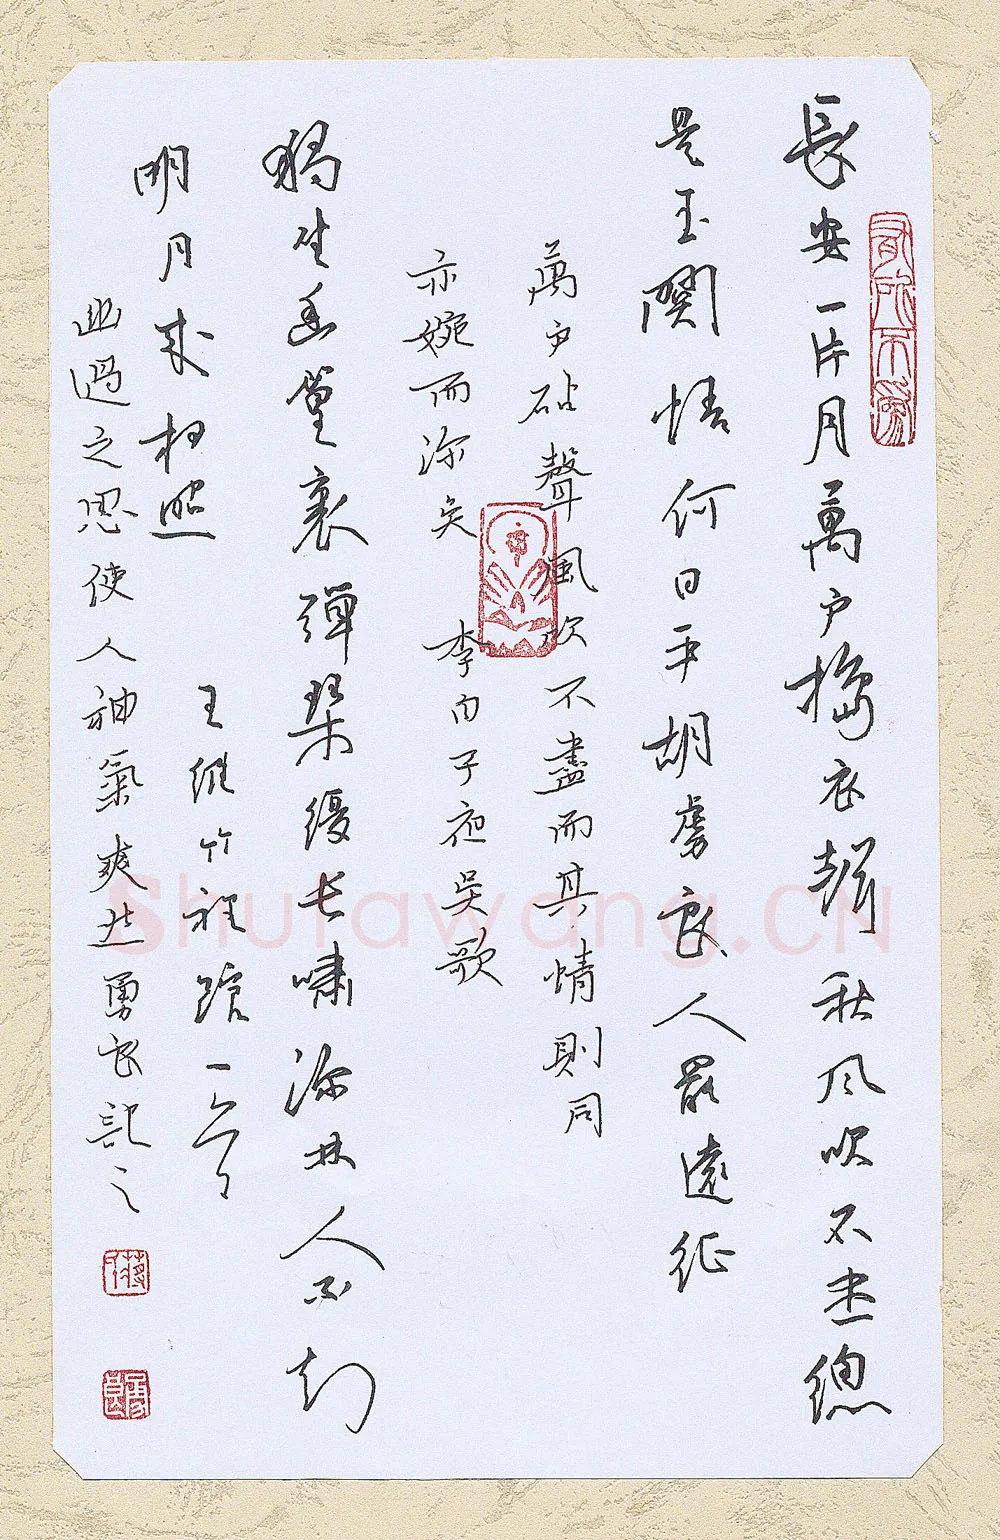 長安一片月萬户搗衣聲秋风吹不盡總
是玉關情何日平胡虜良人罷遠征
萬户砧聲風吹不盡而其情則同
亦婉而深矣 李白子夜吴歌
獨坐幽篁裏彈琴復长嘯深林人不知
明月来相照
王維竹裡館一首
幽過之思使人神氣爽然勇良記之
有所不為
Shufawang.CN